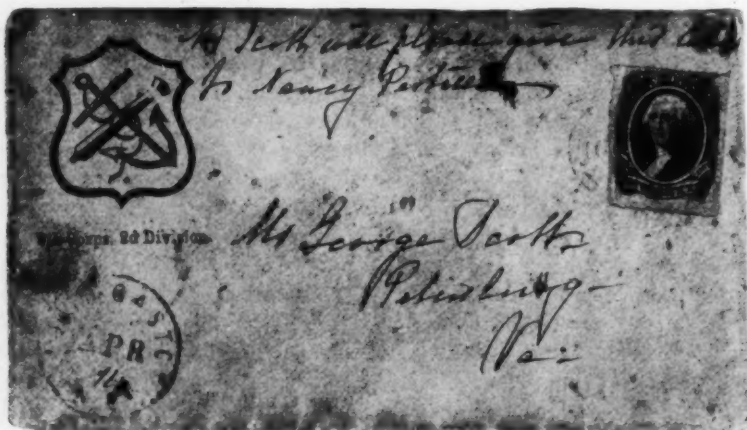 Mr Scott will please give this
to Nancy
Corps, 2d Division.
Mr George Scott
Petersburg
Va:
APR